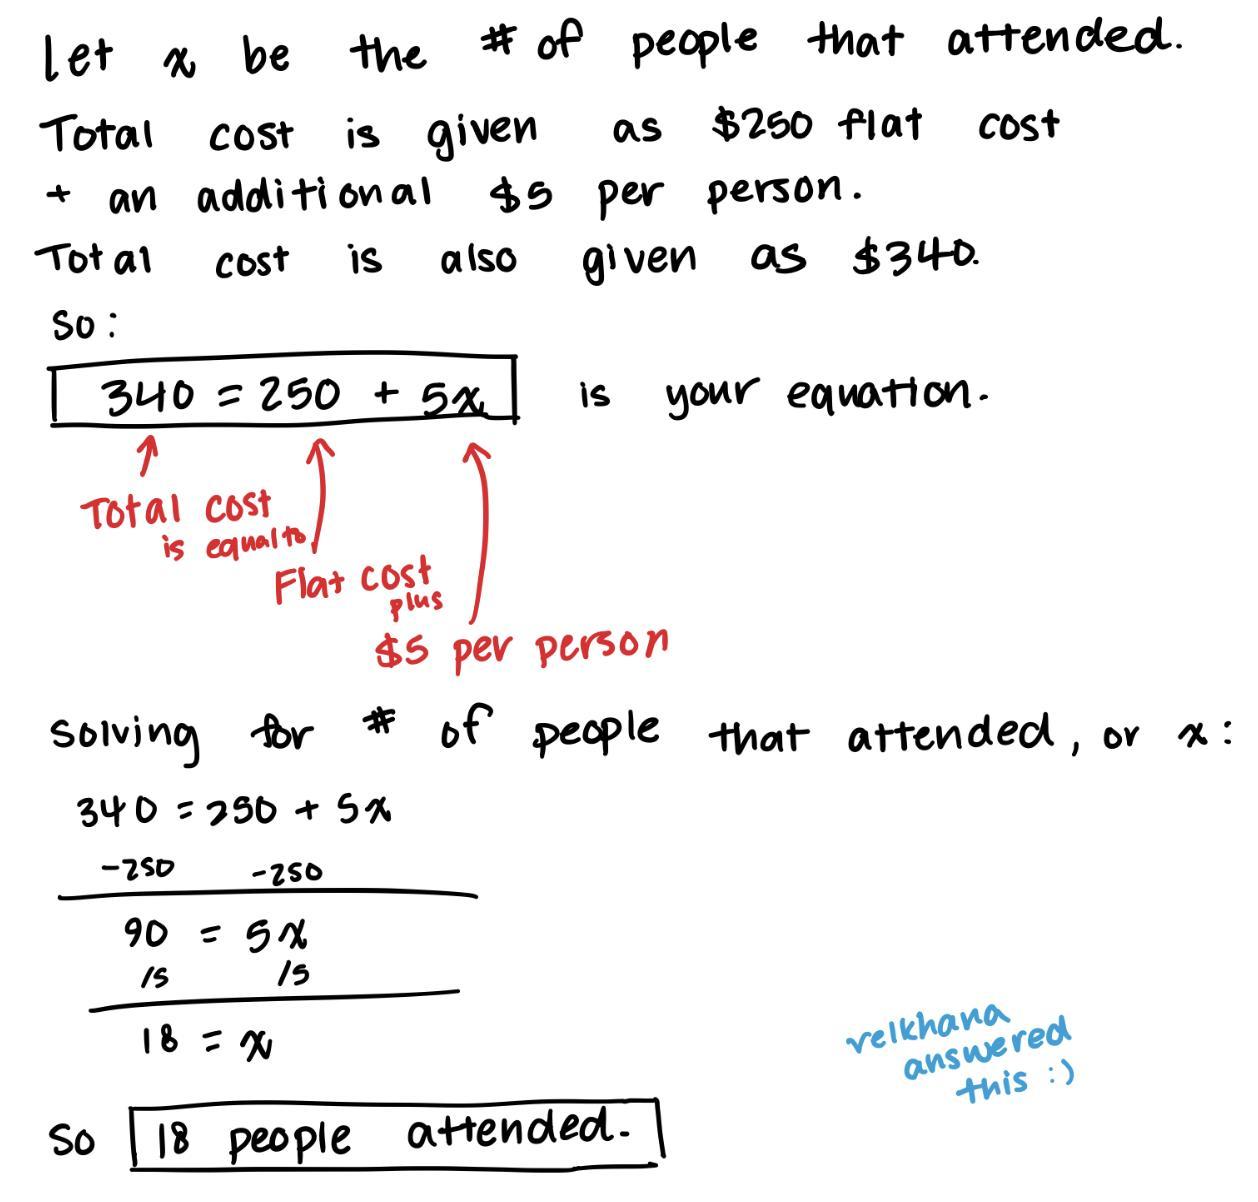 Let x be the # of people that attended.
Total cost is given as $250 flat cost
+ an additional $5 per person.
Total cost is also given as $340.
So:
340 = 250 + 5x is your equation.
Total cost
is equal to
Flat cost
plus
$5 per person
Solving for # of people that attended, or x:
340 = 250 + 5x
-250 -250
90 = 5x
/5 /5
18 = x
So 18 people attended.
velkhana
answered
this :)